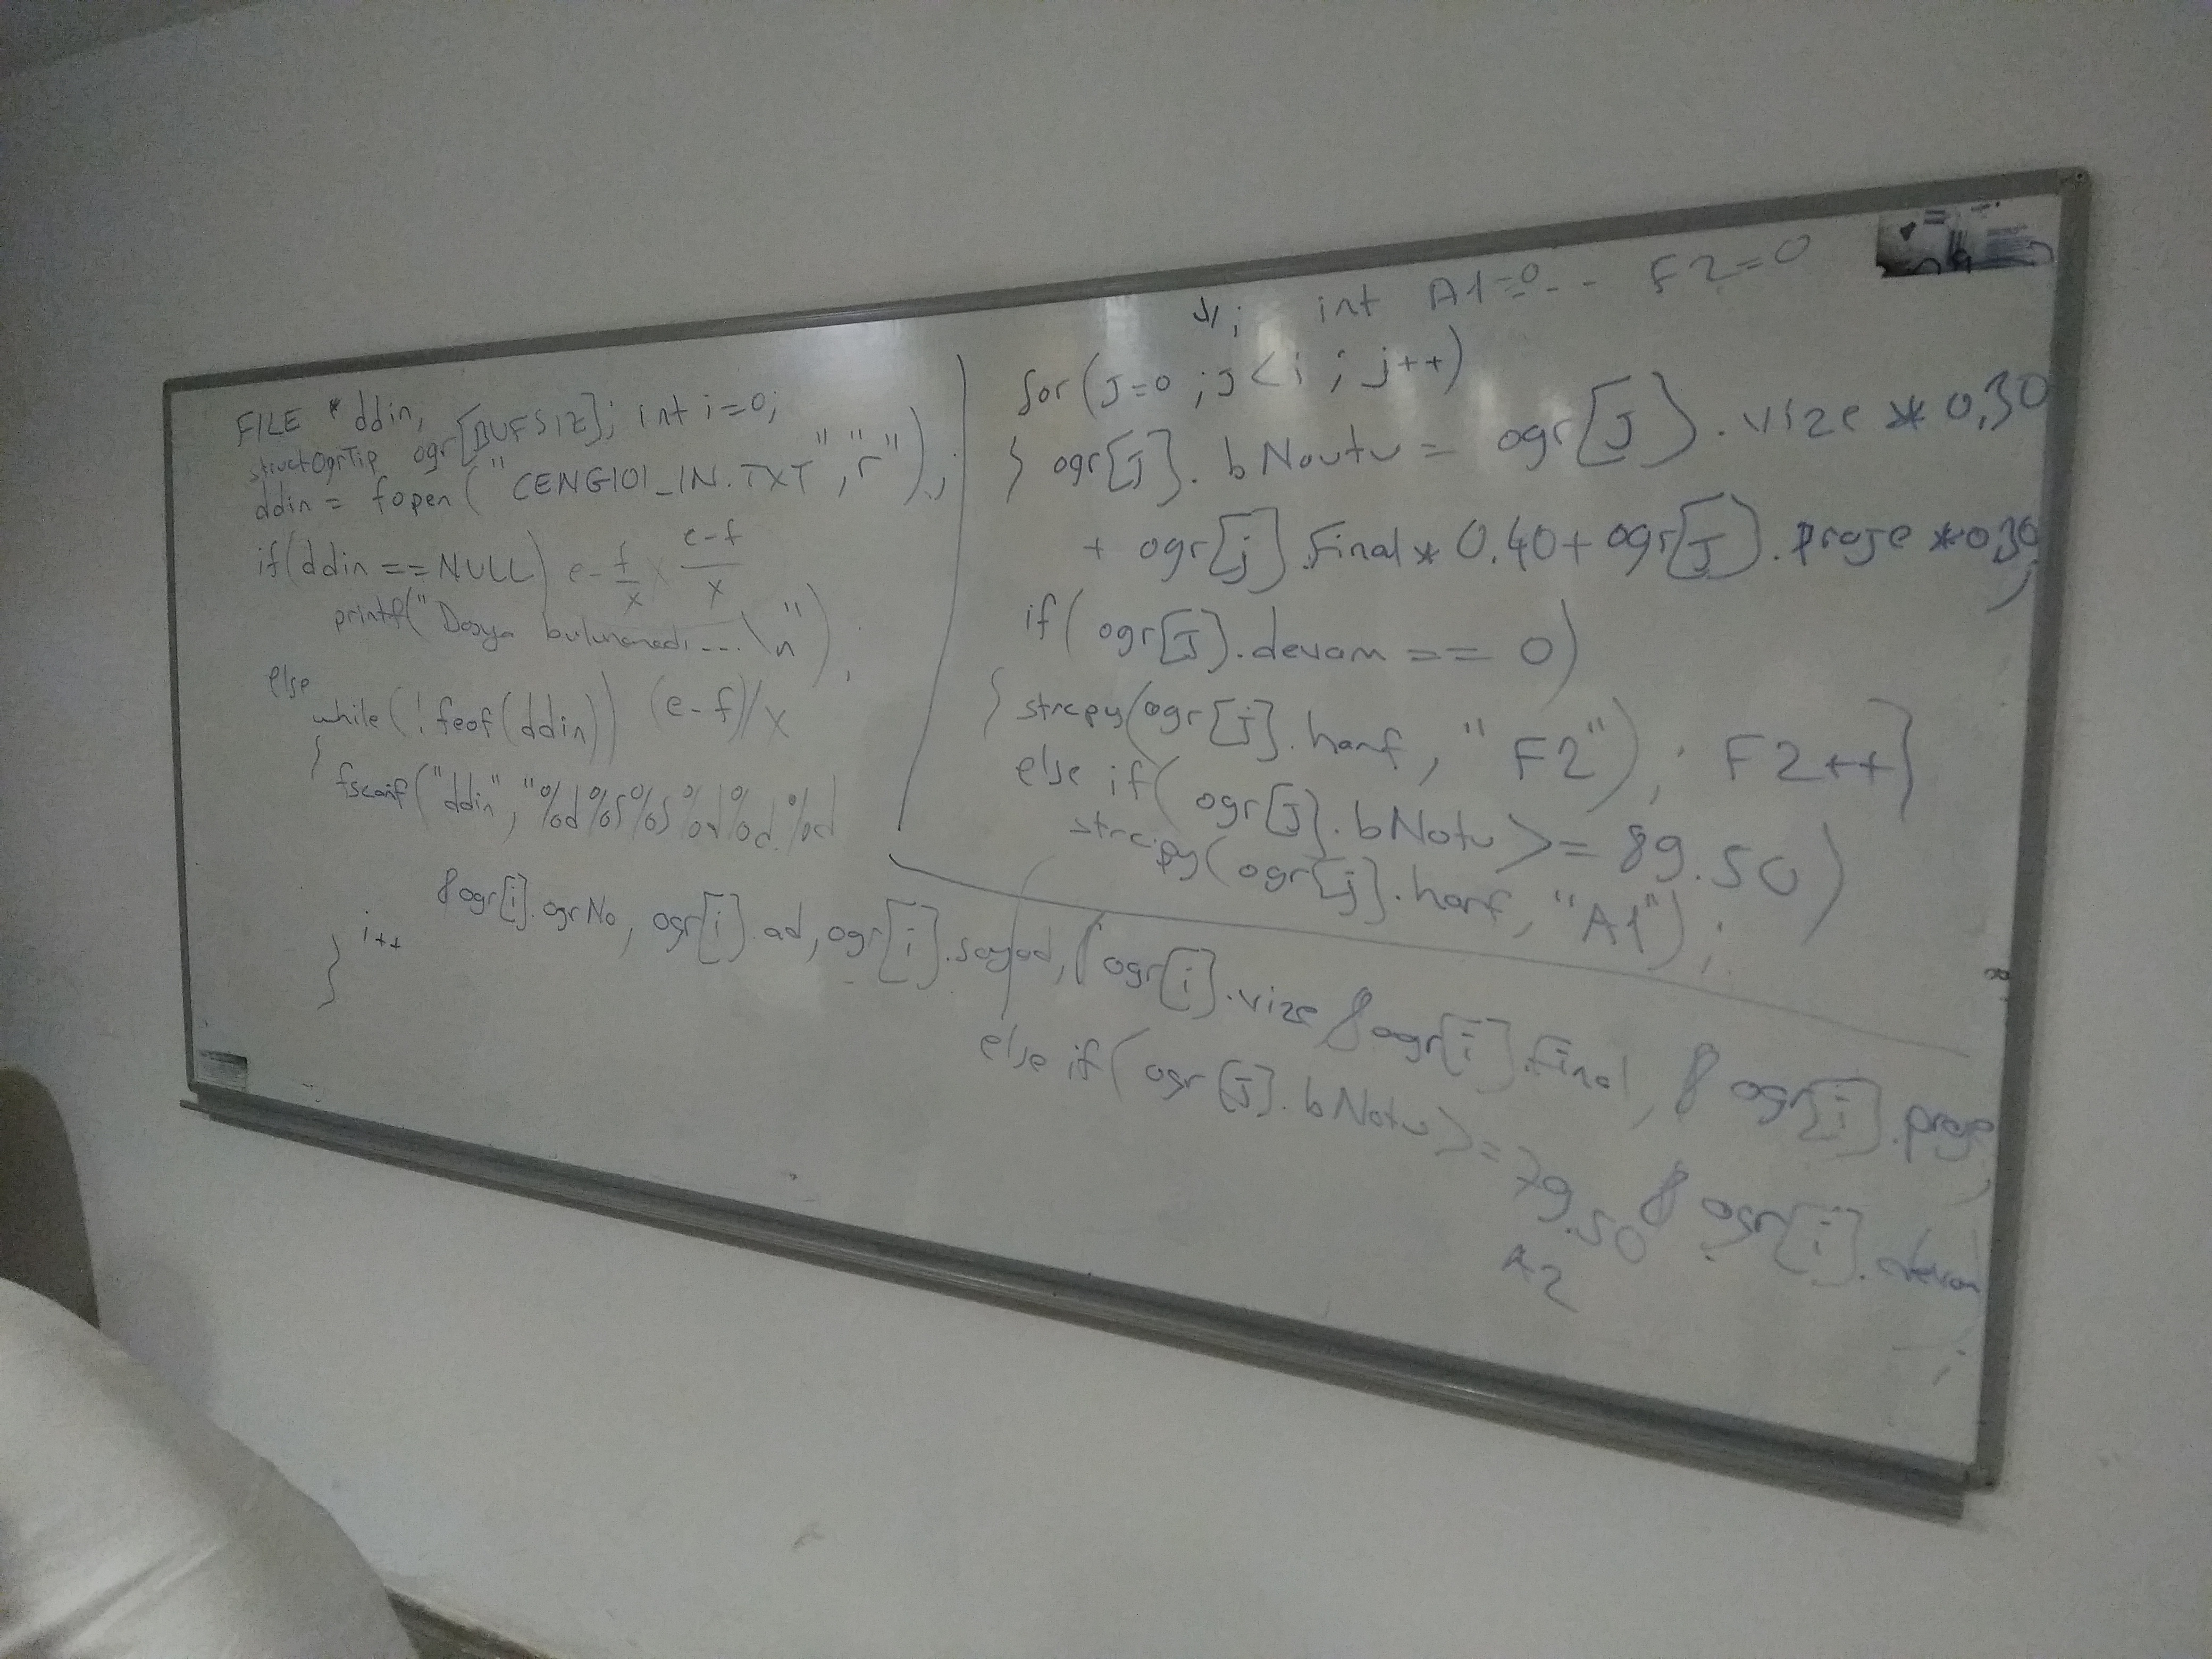 FILE *ddin;
struct OgrTip ogr[BUFSIZ]; int i=0;
ddin = fopen("CENG101_IN.TXT","r");
if(ddin==NULL) e-f/x e-f/x
printf("Dosya bulunamadı...\n");
else
while(!feof(ddin)) (e-f)/x
{
fscanf("ddin","%d%s%s%d%d%d
&ogr[i].ogrNo, ogr[i].ad, ogr[i].soyad, &ogr[i].vize &ogr[i].final, &ogr[i].proje,
&ogr[i].devam
);
i++
}
int A1=0-- F2=0
for(J=0;J<i;j++)
{ ogr[J].bNoutu = ogr[J].vize * 0,30
+ ogr[j].final * 0.40 + ogr[J].proje * 0,30;
if(ogr[J].devam == 0)
{ strcpy(ogr[j].harf, "F2"); F2++}
else if(ogr[J].bNotu >= 89.50)
strcpy(ogr[j].harf, "A1");
else if(ogr[J].bNotu >= 79.50
A2